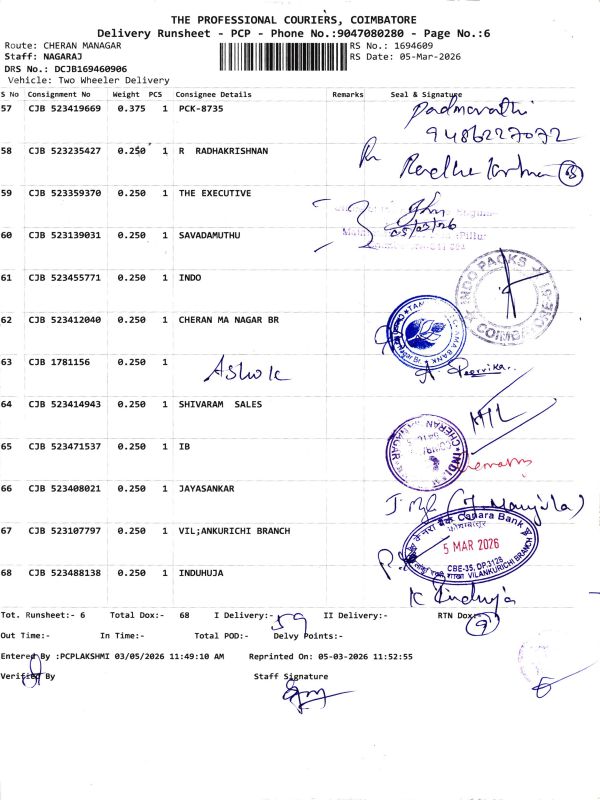 THE PROFESSIONAL COURIERS, COIMBATORE
Delivery Runsheet - PCP - Phone No.:9047080280 - Page No.:6
Route: CHERAN MANAGAR RS No.: 1694609
Staff: NAGARAJ RS Date: 05-Mar-2026
DRS No.: DCJB169460906
Vehicle: Two Wheeler Delivery
S No Consignment No Weight PCS Consignee Details Remarks Seal & Signature
57 CJB 523419669 0.375 1 PCK-8735 Padmavathi
9486227072
58 CJB 523235427 0.250 1 R RADHAKRISHNAN
59 CJB 523359370 0.250 1 THE EXECUTIVE
05/03/26
60 CJB 523139031 0.250 1 SAVADAMUTHU
61 CJB 523455771 0.250 1 INDO INDO PACKS
62 CJB 523412040 0.250 1 CHERAN MA NAGAR BR
63 CJB 1781156 0.250 1 Ashok Poorvika
64 CJB 523414943 0.250 1 SHIVARAM SALES
65 CJB 523471537 0.250 1 IB
66 CJB 523408021 0.250 1 JAYASANKAR
67 CJB 523107797 0.250 1 VIL;ANKURICHI BRANCH Canara Bank
5 MAR 2026
CBE-35, DP.3125
VILANKURICHI BRANCH
68 CJB 523488138 0.250 1 INDUHUJA K Induja
Tot. Runsheet:- 6 Total Dox:- 68 I Delivery:- 59 II Delivery:- RTN Dox:- 9
Out Time:- In Time:- Total POD:- Delvy Points:-
Entered By :PCPLAKSHMI 03/05/2026 11:49:10 AM Reprinted On: 05-03-2026 11:52:55
Verified By Staff Signature